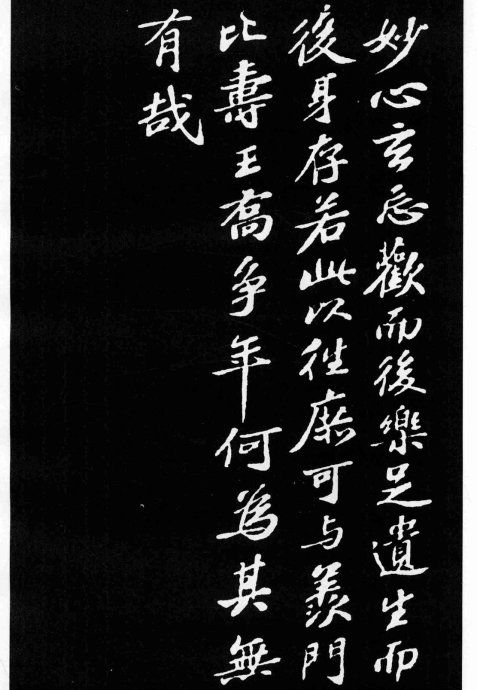 妙心玄忘歡而後樂足遺生而
後身存若此以往庶可与羨門
比壽王喬争年何為其無
有哉